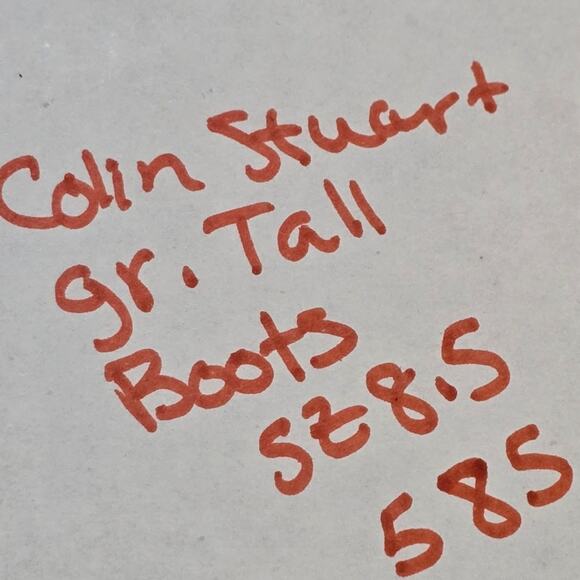 Colin Stuart
gr. Tall
Boots
SZ 8.5
585